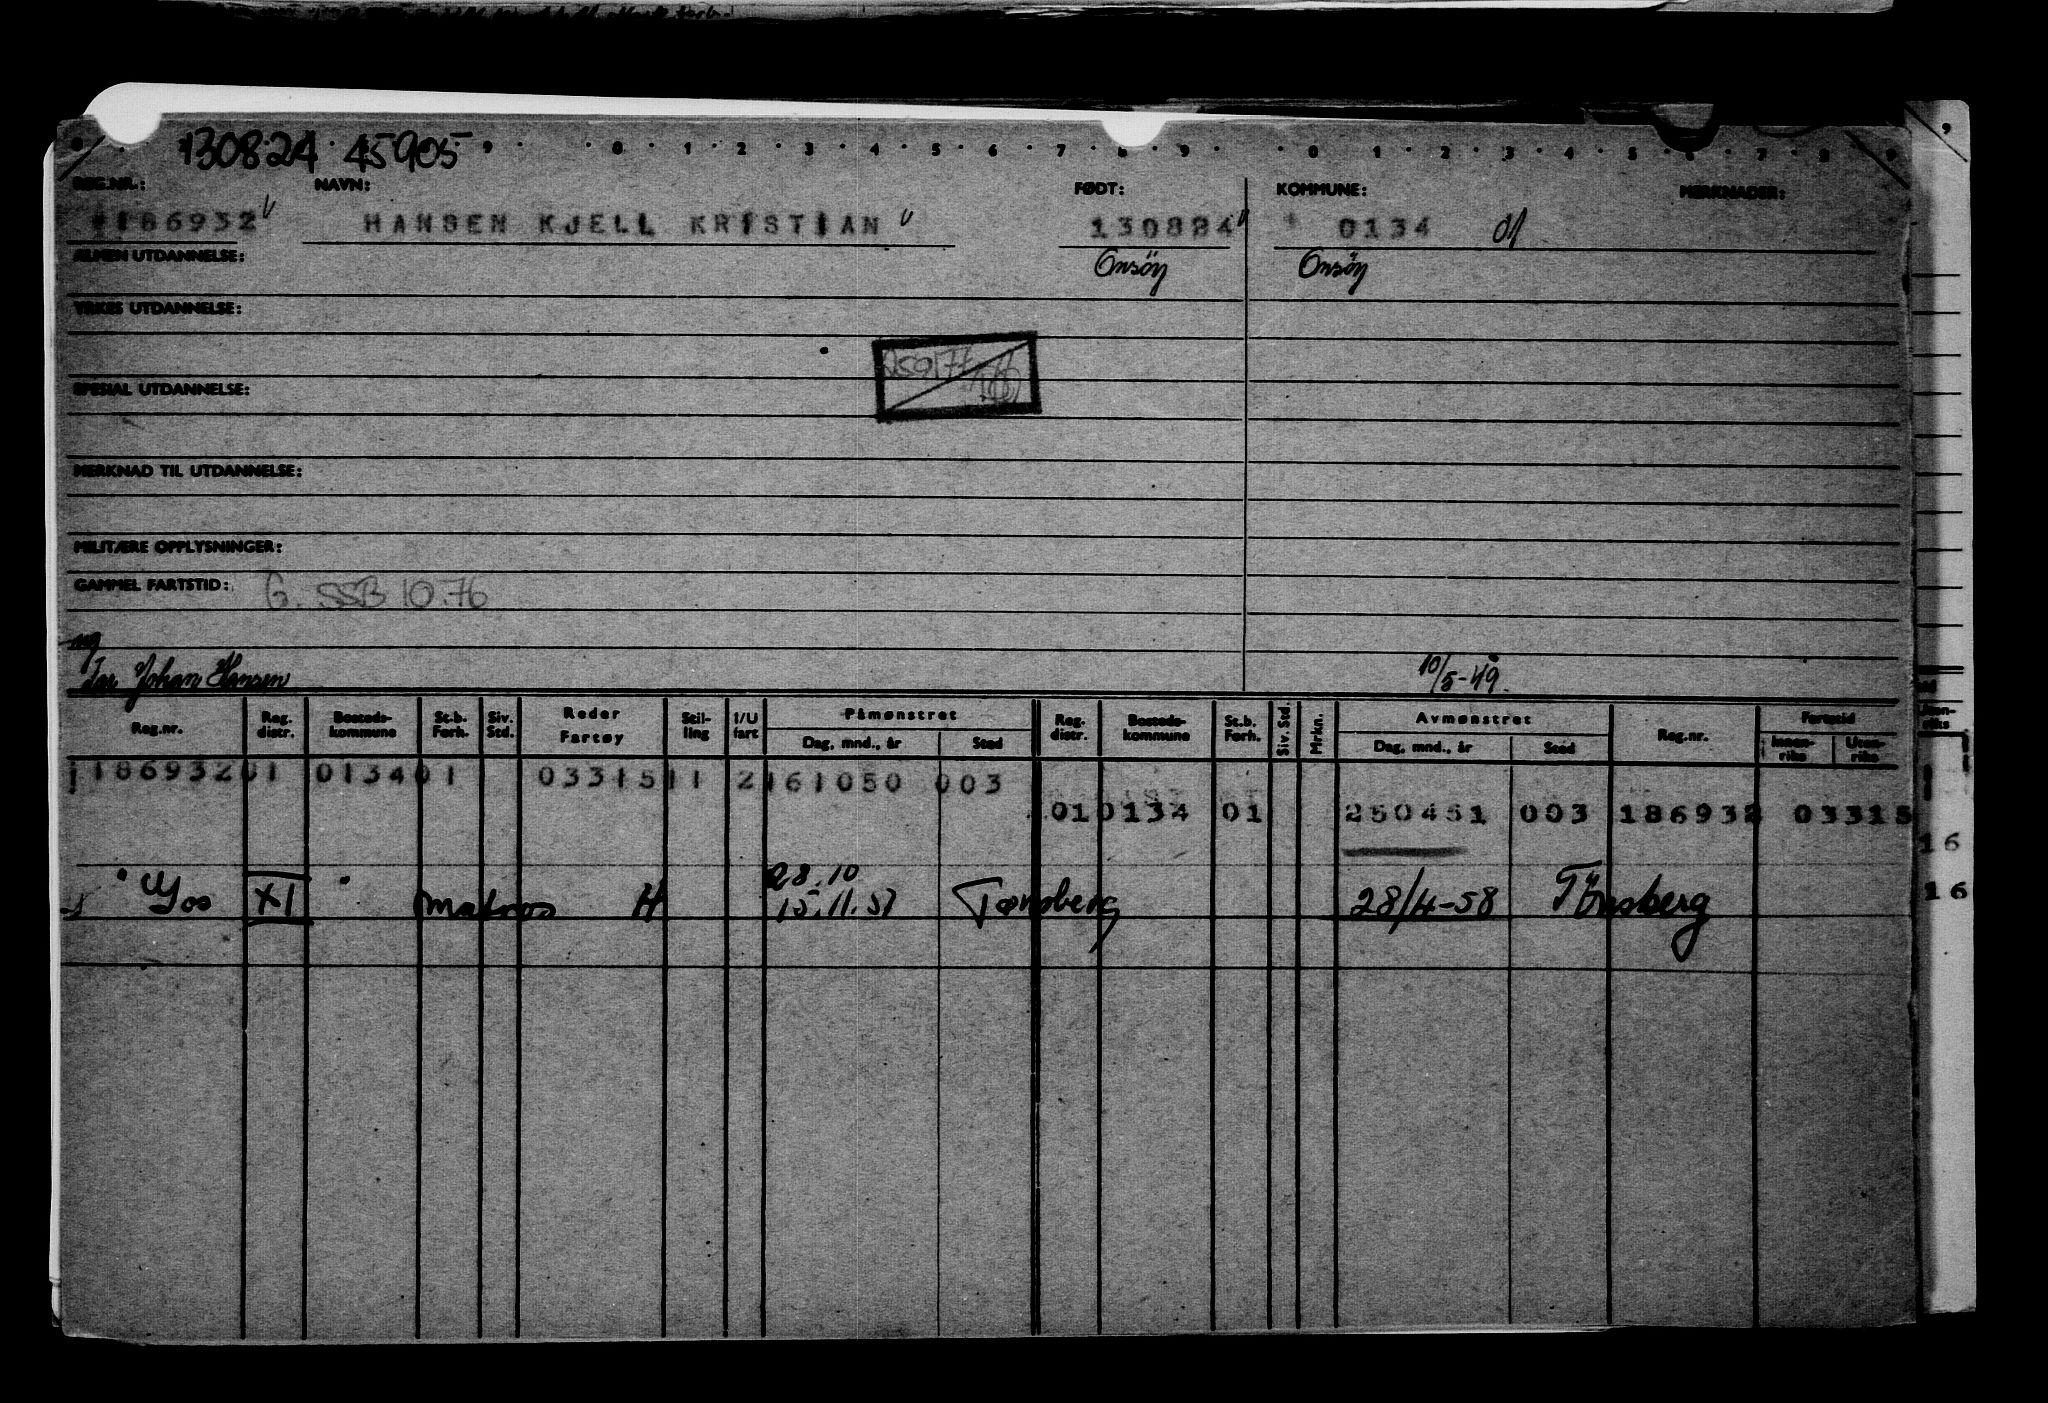 130824 45905
9 0 1 2 3 4 5 6 7 8 9 0 1 2 3 4 5 6 7 8 9
REG.NR.: NAVN: FØDT: KOMMUNE: MERKNADER:
186932 HANSEN KJELL KRISTIAN 130824 0134 01
ALMEN UTDANNELSE: Onsöy Onsöy
YRKES UTDANNELSE:
SPESIAL UTDANNELSE:
MERKNAD TIL UTDANNELSE:
MILITÆRE OPPLYSNINGER:
GAMMEL FARTSTID: G. SSB 10.76
Far Johan Hansen 10/5-49.
Reg.nr. Reg. distr. Bosteds-kommune St.b. Forh. Siv. Std. Reder Fartøy Stil-ling I/U fart Påmønstret Dag, mnd., år Sted Reg. distr. Bosteds-kommune St.b. Forh. Siv. Std. Mrkn. Avmønstret Dag, mnd., år Sted Reg.nr. Fartstid Innen-riks Uten-riks
186932 01 0134 01 03315 11 2 161050 003
01 0134 01 250451 003 186932 03315
16
28.10
XI " Matros H 15.11.57 Tønsberg 28/4-58 Tönsberg
16